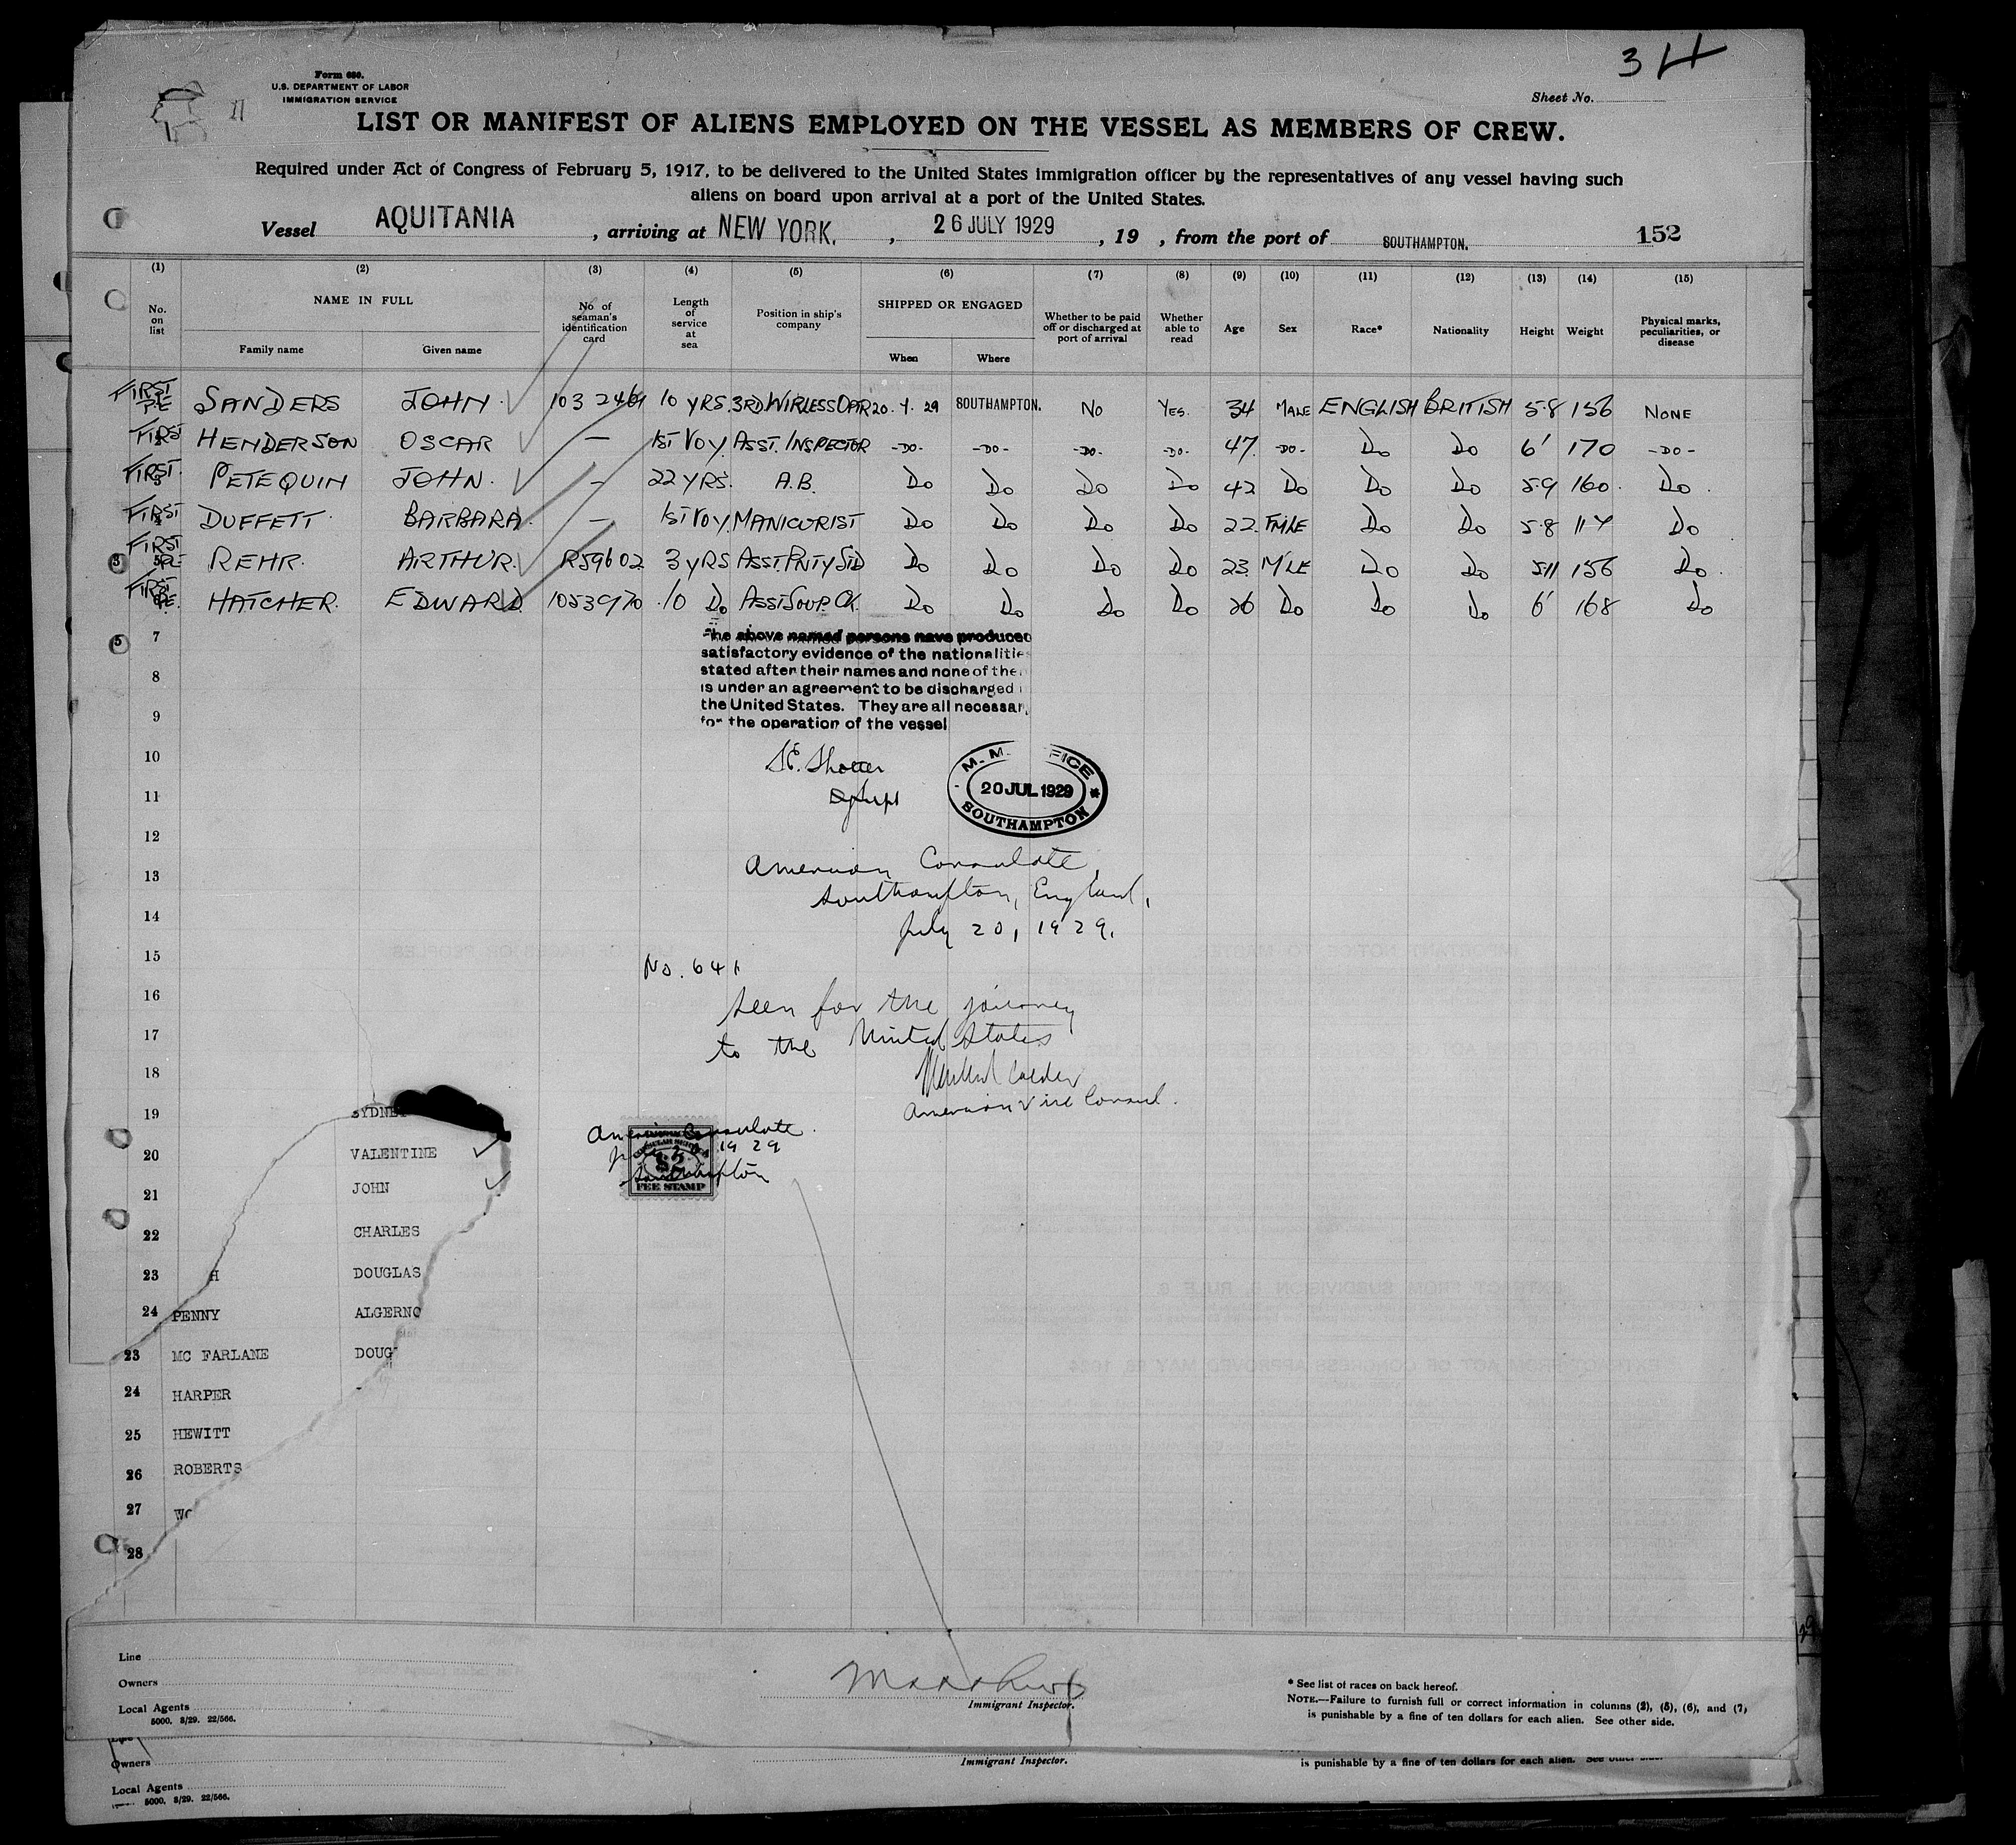 34
Form 680.
U.S. DEPARTMENT OF LABOR
IMMIGRATION SERVICE
Sheet No.
LIST OR MANIFEST OF ALIENS EMPLOYED ON THE VESSEL AS MEMBERS OF CREW.
Required under Act of Congress of February 5, 1917, to be delivered to the United States immigration officer by the representatives of any vessel having such
aliens on board upon arrival at a port of the United States.
Vessel AQUITANIA, arriving at NEW YORK., 26 JULY 1929, 19 , from the port of SOUTHAMPTON. 152
(1) (2) (3) (4) (5) (6) (7) (8) (9) (10) (11) (12) (13) (14) (15)
No. on list NAME IN FULL No. of seaman's identification card Length of service at sea Position in ship's company SHIPPED OR ENGAGED Whether to be paid off or discharged at port of arrival Whether able to read Age Sex Race* Nationality Height Weight Physical marks, peculiarities, or disease
Family name Given name When Where
FIRST SANDERS JOHN. 10 YRS. 3RD WIRLESS OPR 20. 7. 29 SOUTHAMPTON. NO YES. 34 MALE ENGLISH BRITISH 5-8 156 NONE
FIRST HENDERSON OSCAR — 1ST VOY. ASST. INSPECTOR -DO- -DO- -DO- -DO- 47. -DO- Do Do 6' 170 -DO-
FIRST. PETEQUIN JOHN. — 22 YRS. A.B. Do Do Do Do 42 Do Do Do 5.9 160. Do.
FIRST DUFFETT. BARBARA. — 1ST VOY. MANICURIST Do Do Do Do 22. FMLE Do Do 5-8 117 Do
FIRST REHR. ARTHUR. R59602 3 YRS ASST. PNTY STD Do Do Do Do 23. MLE Do Do 5.11 156 Do.
FIRST HATCHER. EDWARD. 1053970 10 Do ASST SOUP CK. Do Do Do Do 26 Do Do Do 6' 168 Do
3
5
7
The above named persons have produced
satisfactory evidence of the nationalities
stated after their names and none of them
8
is under an agreement to be discharged
the United States. They are all necessary
9
for the operation of the vessel
10
M. M. FICE
20 JUL 1929
SOUTHAMPTON
11
12
American Consulate,
13
Southampton, England,
14
July 20, 1929.
15
No. 641
16
Seen for the journey
17
to the United States
18
American Vice Consul.
19 SYDNE
American Consulate.
1929
Southampton
$2
FEE STAMP
20 VALENTINE
21 JOHN
22 CHARLES
23 H DOUGLAS
24 PENNY ALGERNO
23 MC FARLANE DOUG
24 HARPER
25 HEWITT
26 ROBERTS
27 WO
28
Line
Owners
Local Agents
5000. 8/29. 22/566.
Immigrant Inspector.
* See list of races on back hereof.
NOTE.—Failure to furnish full or correct information in columns (2), (5), (6), and (7)
is punishable by a fine of ten dollars for each alien. See other side.
Owners
Local Agents
5000. 8/29. 22/566.
Immigrant Inspector.
is punishable by a fine of ten dollars for each alien. See other side.